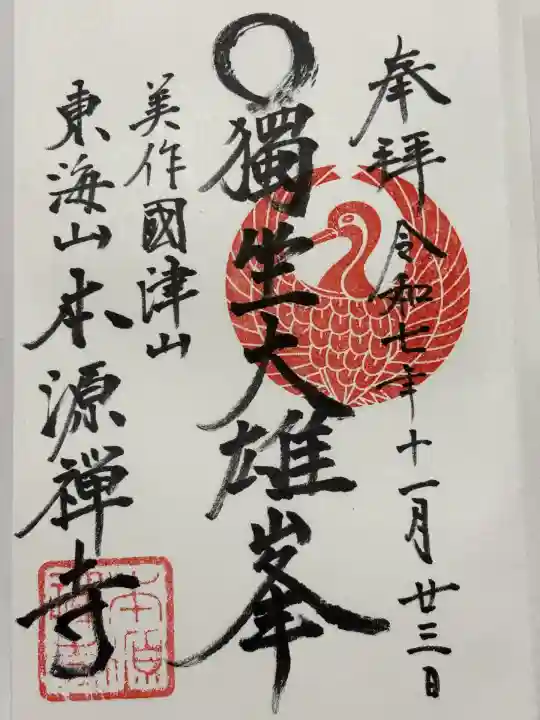 奉拝 令和七年十一月廿三日
獨坐大雄峯
美作國津山
東海山本源禅寺
本源
禅寺